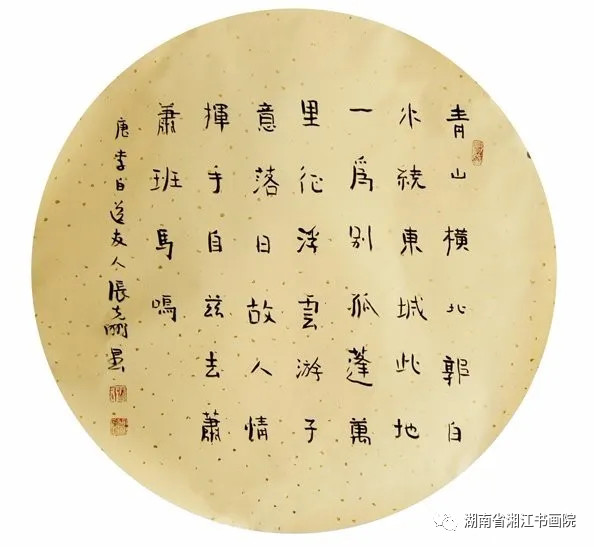 青山橫北郭白
水繞東城此地
一爲別孤蓬萬
里征浮雲游子
意落日故人情
揮手自茲去蕭
蕭班馬鳴
唐李白送友人張
湖南省湘江书画院